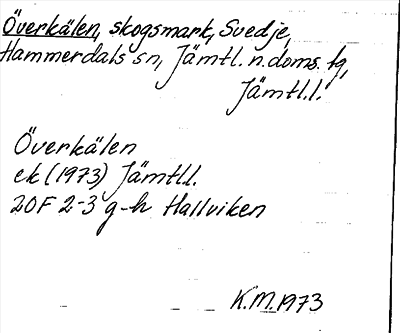 Överkälen, skogsmark, Svedje,
Hammerdals sn, Jämtl. n. doms. tg,
Jämtl.l.
Överkälen
ek (1973) Jämtl.l.
20F 2-3 g-h Hallviken
K.M. 1973